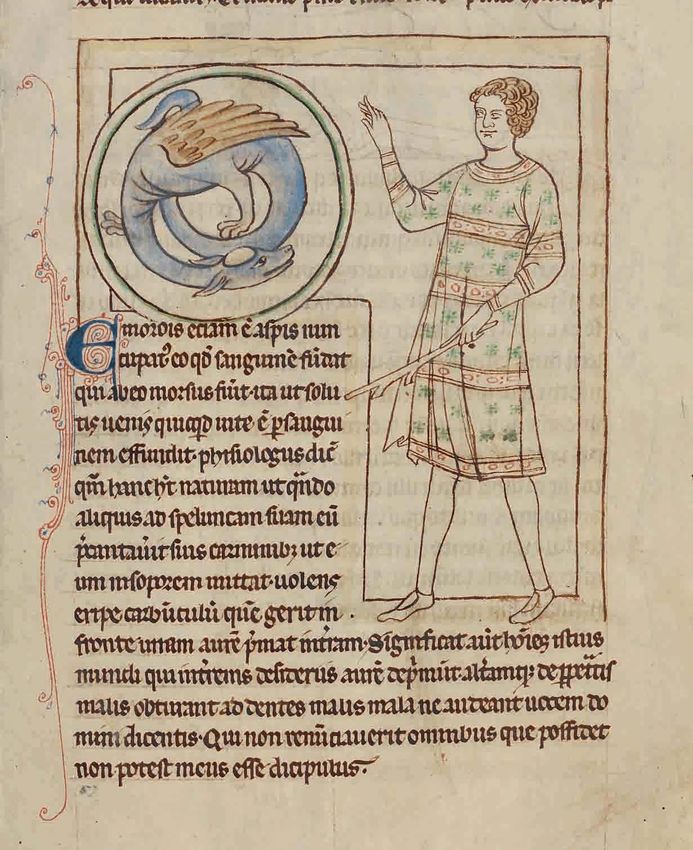 Emorois eciam ē aspis nun
cupatꝰ eo qđ sanguinē sudat
qui ab eo morsus fūit· ita ut solu
tis uenis quicqđ uite ē ꝑ sangui
nem effundit· phisiologus dic̄
qm̄ hanc hꝫ naturam ut qn̄do
aliquis ad speluncam suam eū
p̄cantauit suis carminibꝫ ut e
um in soporem mittat· uolens
eripe carbūculū quē gerit in
fronte unam aurē p̄mat in tr̄ram· Significat aūt hōīes istius
mundi qui in tr̄renis desideriis aurē dep̄mūt alt̄amqꝫ de ꝑpetratis
malis obturant addentes malis mala ne audeant uocem do
mini dicentis· Qui non renūciauerit omnibus que possidet
non potest meus esse dicipulus·